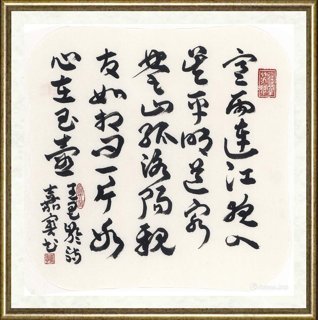 寒雨連江夜入
吴平明送客
楚山孤洛陽親
友如相问一片冰
心在玉壺
王昌龄詩
嘉书